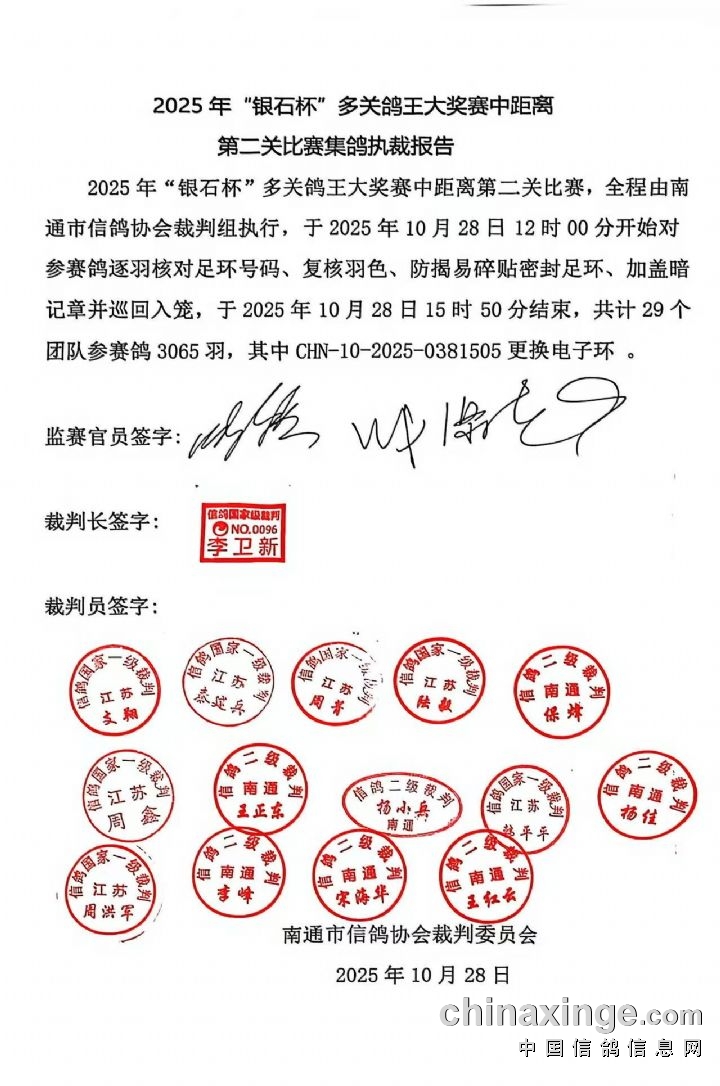 2025 年“银石杯”多关鸽王大奖赛中距离
第二关比赛集鸽执裁报告
2025 年“银石杯”多关鸽王大奖赛中距离第二关比赛，全程由南
通市信鸽协会裁判组执行，于 2025 年 10 月 28 日 12 时 00 分开始对
参赛鸽逐羽核对足环号码、复核羽色、防揭易碎贴密封足环、加盖暗
记章并巡回入笼，于 2025 年 10 月 28 日 15 时 50 分结束，共计 29 个
团队参赛鸽 3065 羽，其中 CHN-10-2025-0381505 更换电子环 。
监赛官员签字:
裁判长签字:
信鸽国家级裁判
NO.0096
李卫新
裁判员签字:
信鸽国家一级裁判
江苏
文翔
信鸽国家一级裁判
江苏
秦建兵
信鸽国家一级裁判
江苏
周菁
信鸽国家一级裁判
江苏
陆毅
信鸽二级裁判
南通
保烽
信鸽国家一级裁判
江苏
周鑫
信鸽二级裁判
南通
王正东
信鸽二级裁判
杨小兵
南通
信鸽国家一级裁判
江苏
平平
信鸽二级裁判
南通
杨佳
信鸽国家一级裁判
江苏
周洪军
信鸽二级裁判
南通
李峰
信鸽二级裁判
南通
宋海华
信鸽二级裁判
南通
王红云
南通市信鸽协会裁判委员会
2025 年 10 月 28 日
chinaxinge.com
中国信鸽信息网